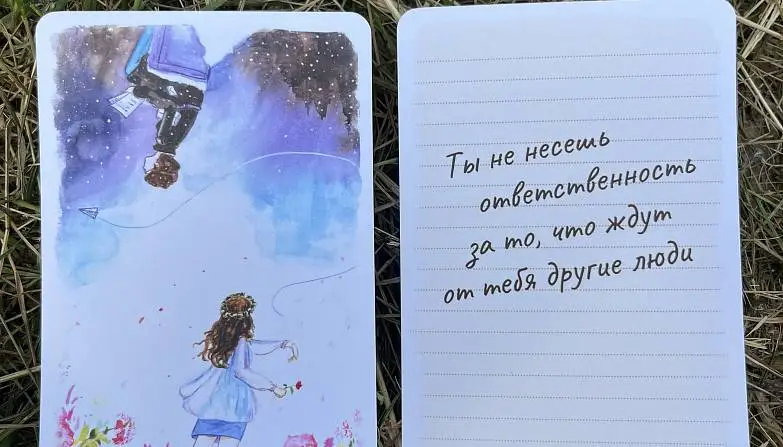 Ты не несешь
ответственность
за то, что ждут
от тебя другие люди